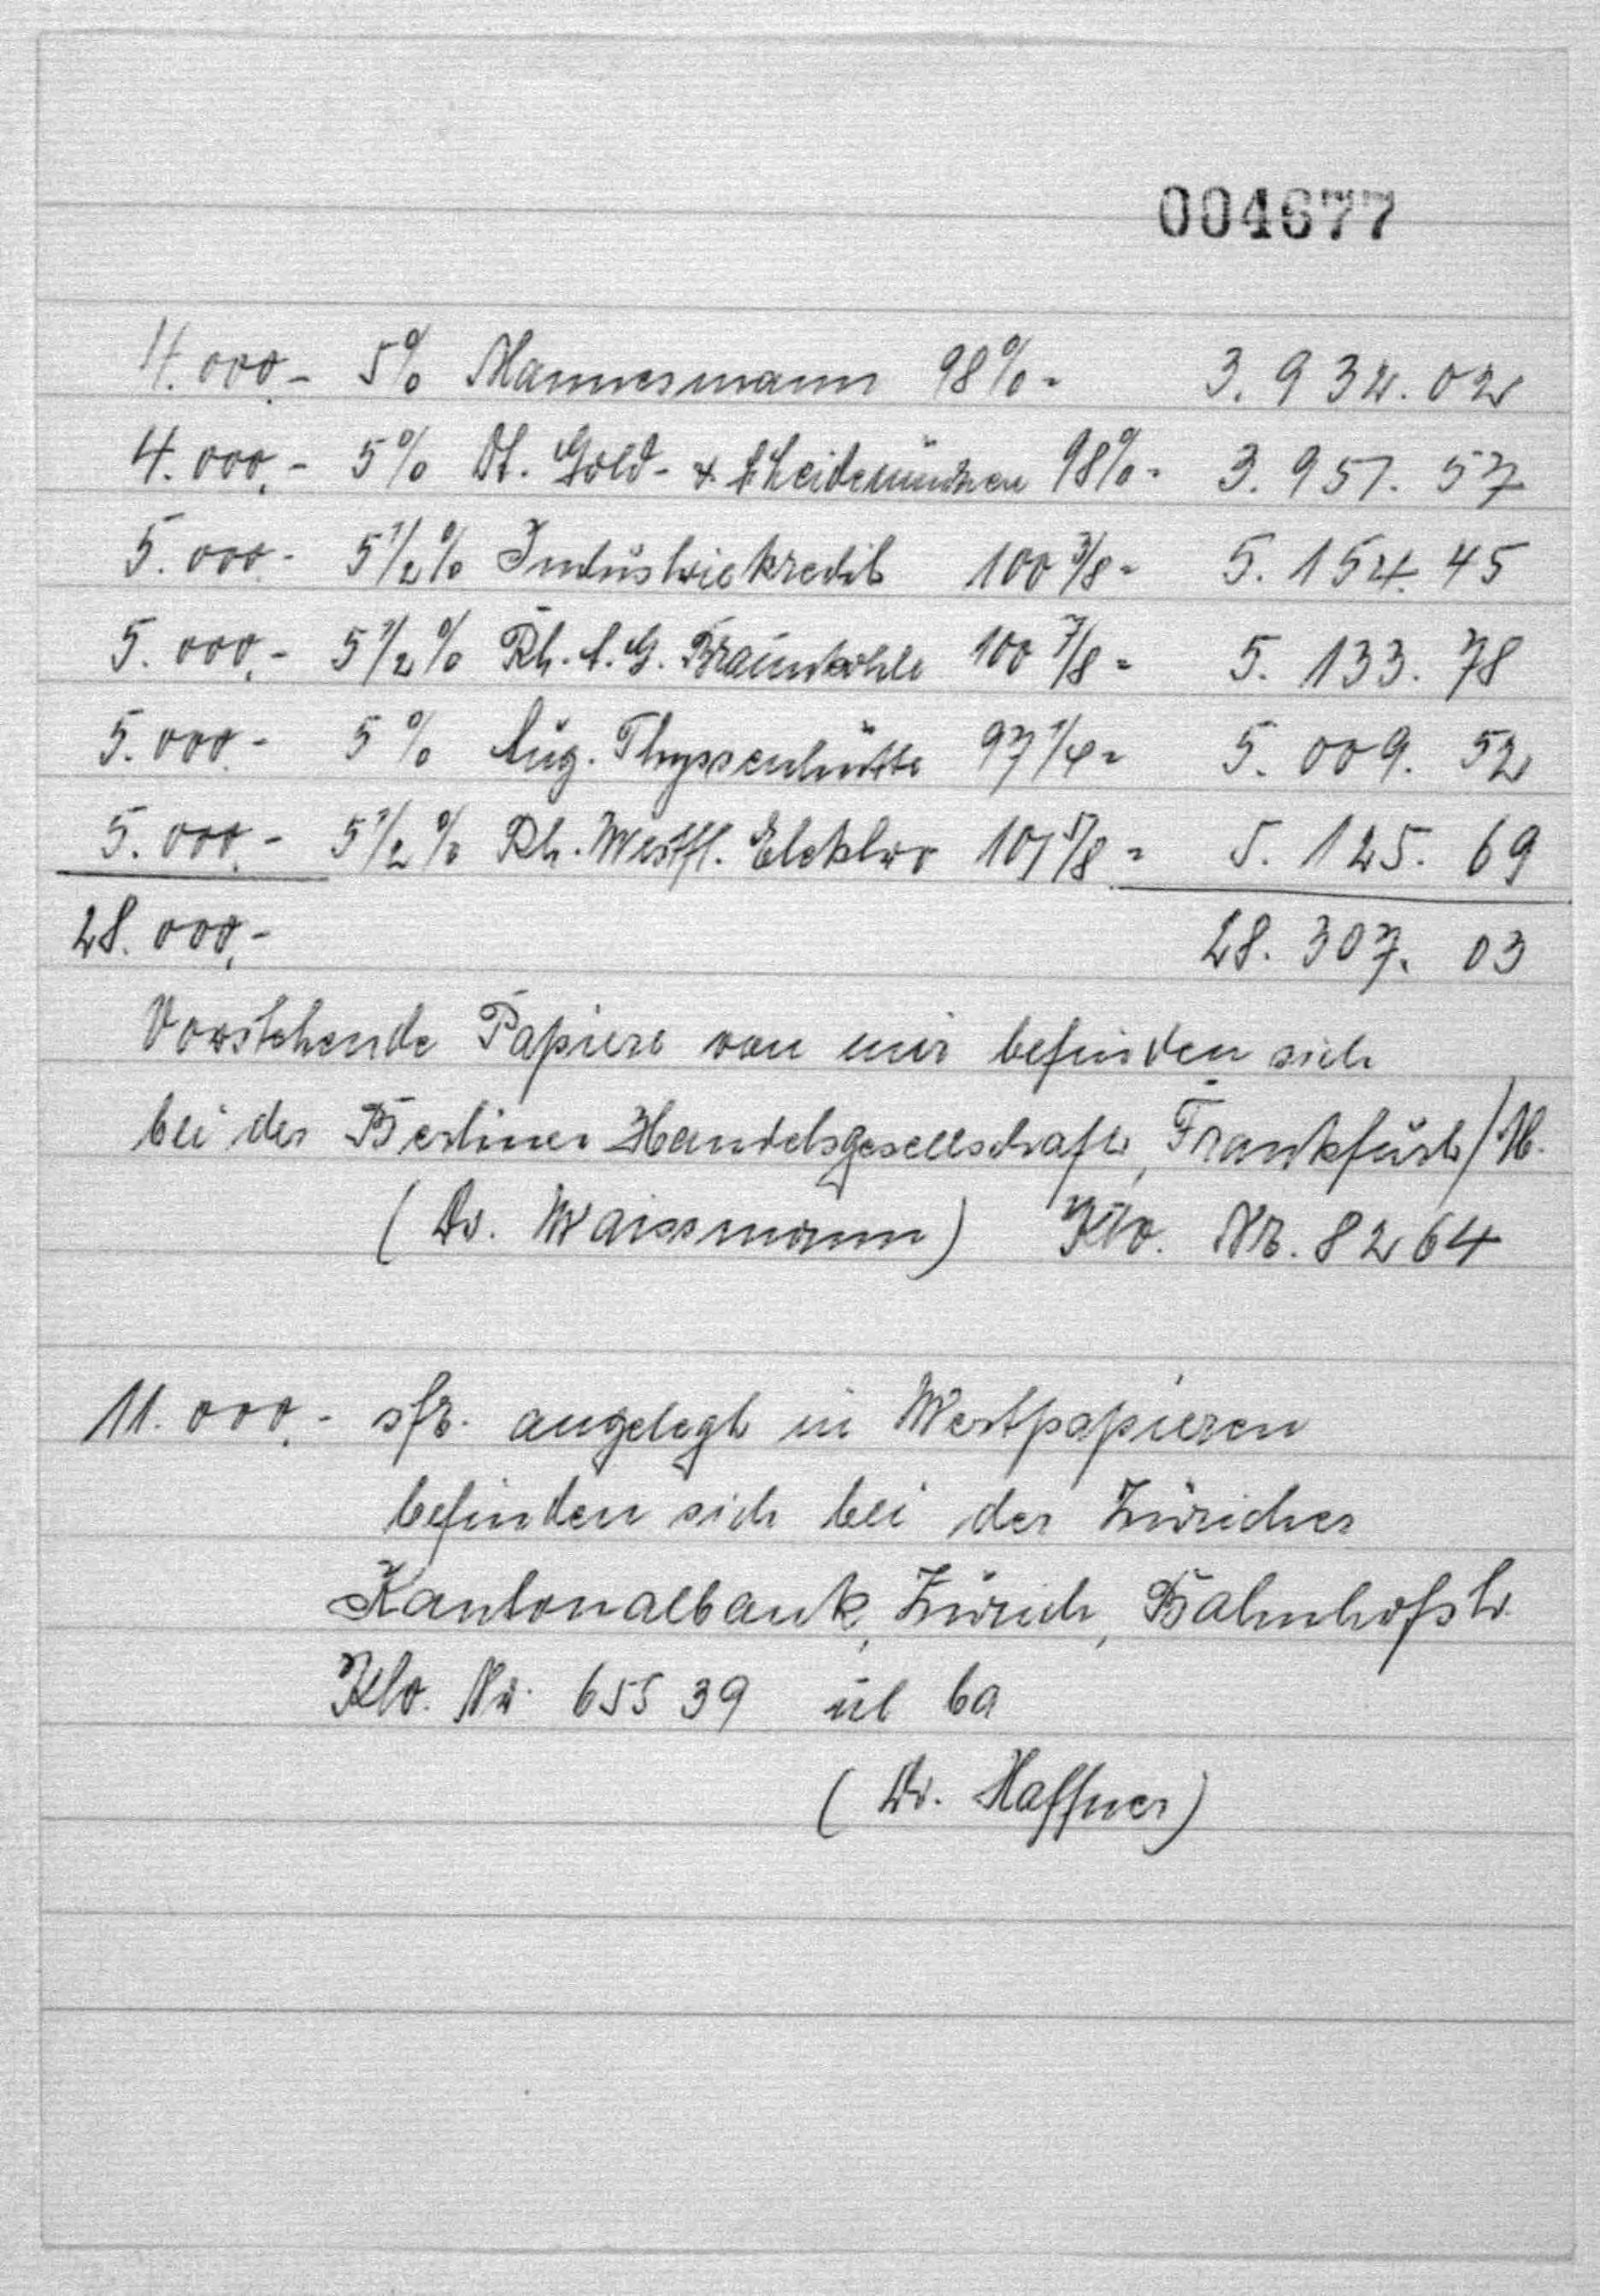 004677
4.000,- 5% Mannesmann 98% = 3.932.02
4.000,- 5% Dt. Gold- & Scheidemünzen 98% = 3.951.57
5.000.- 5 1/2 % Industriekredit 100 3/8 = 5.154.45
5.000,- 5 1/2 % Rh. A.G. Braunkohle 100 7/8 = 5.133.78
5.000.- 5 % Aug. Thyssenhütte 97 1/4 = 5.009.52
5.000.- 5 1/2 % Rh. Westf. Elektro = 5.125.69
28.000,- 28.307.03
Vorstehende Papiere von mir befinden sich
bei der Berliner Handelsgesellschaft, Frankfurt/M.
(Dr. Waissmann) Kto. Nr. 8264
11.000,- sfr. angelegt in Wertpapieren
befinden sich bei der Züricher
Kantonalbank, Zürich, Bahnhofstr.
Kto. Nr. 655 39
(Dr. Haffner)